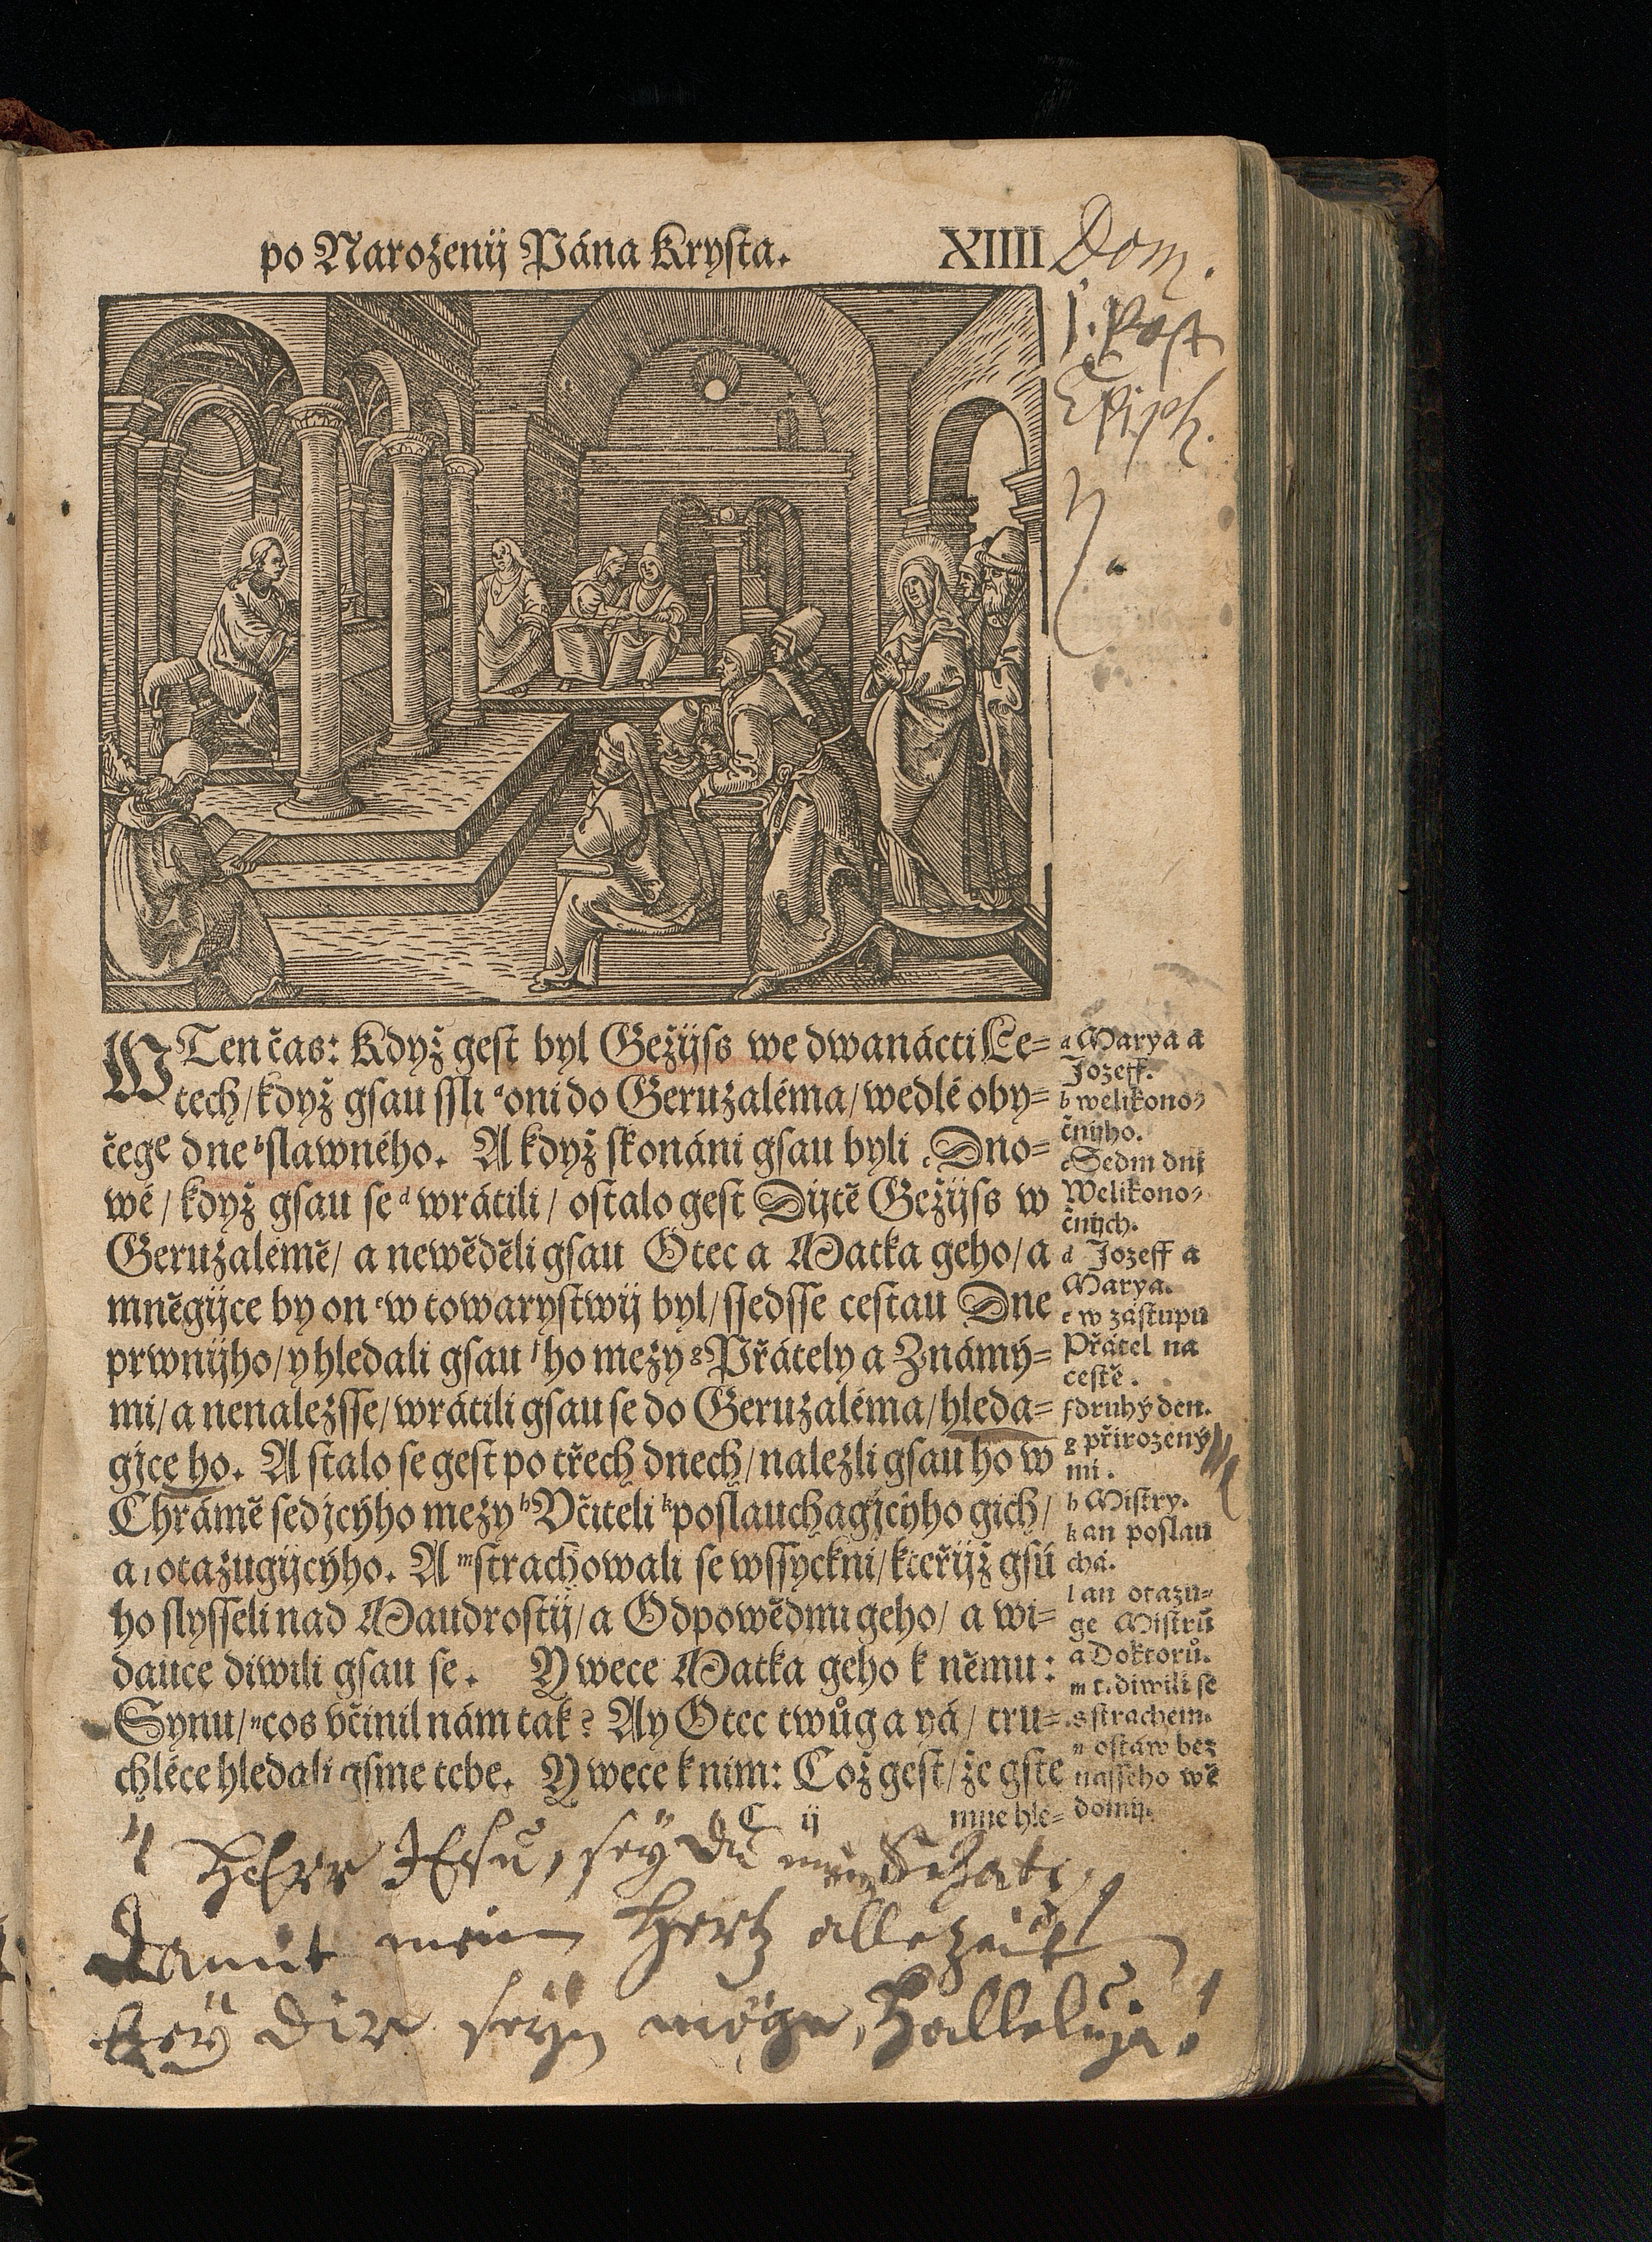 po Narozenij Pána Krysta. XIIII
Dom.
1. Post
Epiph.
W Ten čas: Když gest byl Gežijss we dwanácti Le=
tech/ když gsau ssli a oni do Geruzaléma/ wedlé oby=
čege dne b slawného. A když skonáni gsau byli c Dno=
wé/ když gsau se d wrátili/ ostalo gest Dijtě Gežijss w
Geruzalémě/ a newěděli gsau Otec a Matka geho/ a
mněgijce by on e w towarystwij byl/ ssedsse cestau Dne
prwnijho/ y hledali gsau f ho mezy g Přátely a Známý=
mi/ a nenalezsse/ wrátili gsau se do Geruzaléma/ hleda=
gjce ho. A stalo se gest po třech dnech/ nalezli gsau ho w
Chrámě sedjcýho mezy h Včiteli k poslauchagjcýho gich/
a l otazugijcýho. A m strachowali se wssyckni/ kteřijž gsú
ho slysseli nad Maudrostij/ a Odpowědmi geho/ a wi=
dauce diwili gsau se. Y wece Matka geho k němu:
Synu/ n cos včinil nám tak? Ay Otec twůg a yá/ tru=
chléce hledali gsme tebe. Y wece k nim: Což gest/ že gste
C ij mne hle=
a Marya a
Jozeff.
b welikono=
čnijho.
c Sedm dnj
Welikono=
čnijch.
d Jozeff a
Marya.
e w zástupu
Přátel na
cestě.
f druhý den.
g přirozený
mi.
h Mistry.
k an poslau
chá.
l an otazu=
ge Mistrů
a Doktorů.
m t. diwili se
s strachem.
n ostaw bez
nasseho wě
domij.
HErr JEsu, sey du mein Schatz,
damit mein Hertz allezeit
bey dir seyn möge, Halleluja!